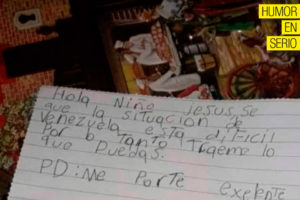 HUMOR
EN
SERIO
Hola Niño Jesus, se
que la situación de
Venezuela esta dificil
Por lo tanto Traeme lo
que Puedas.
PD: Me Porte exelente